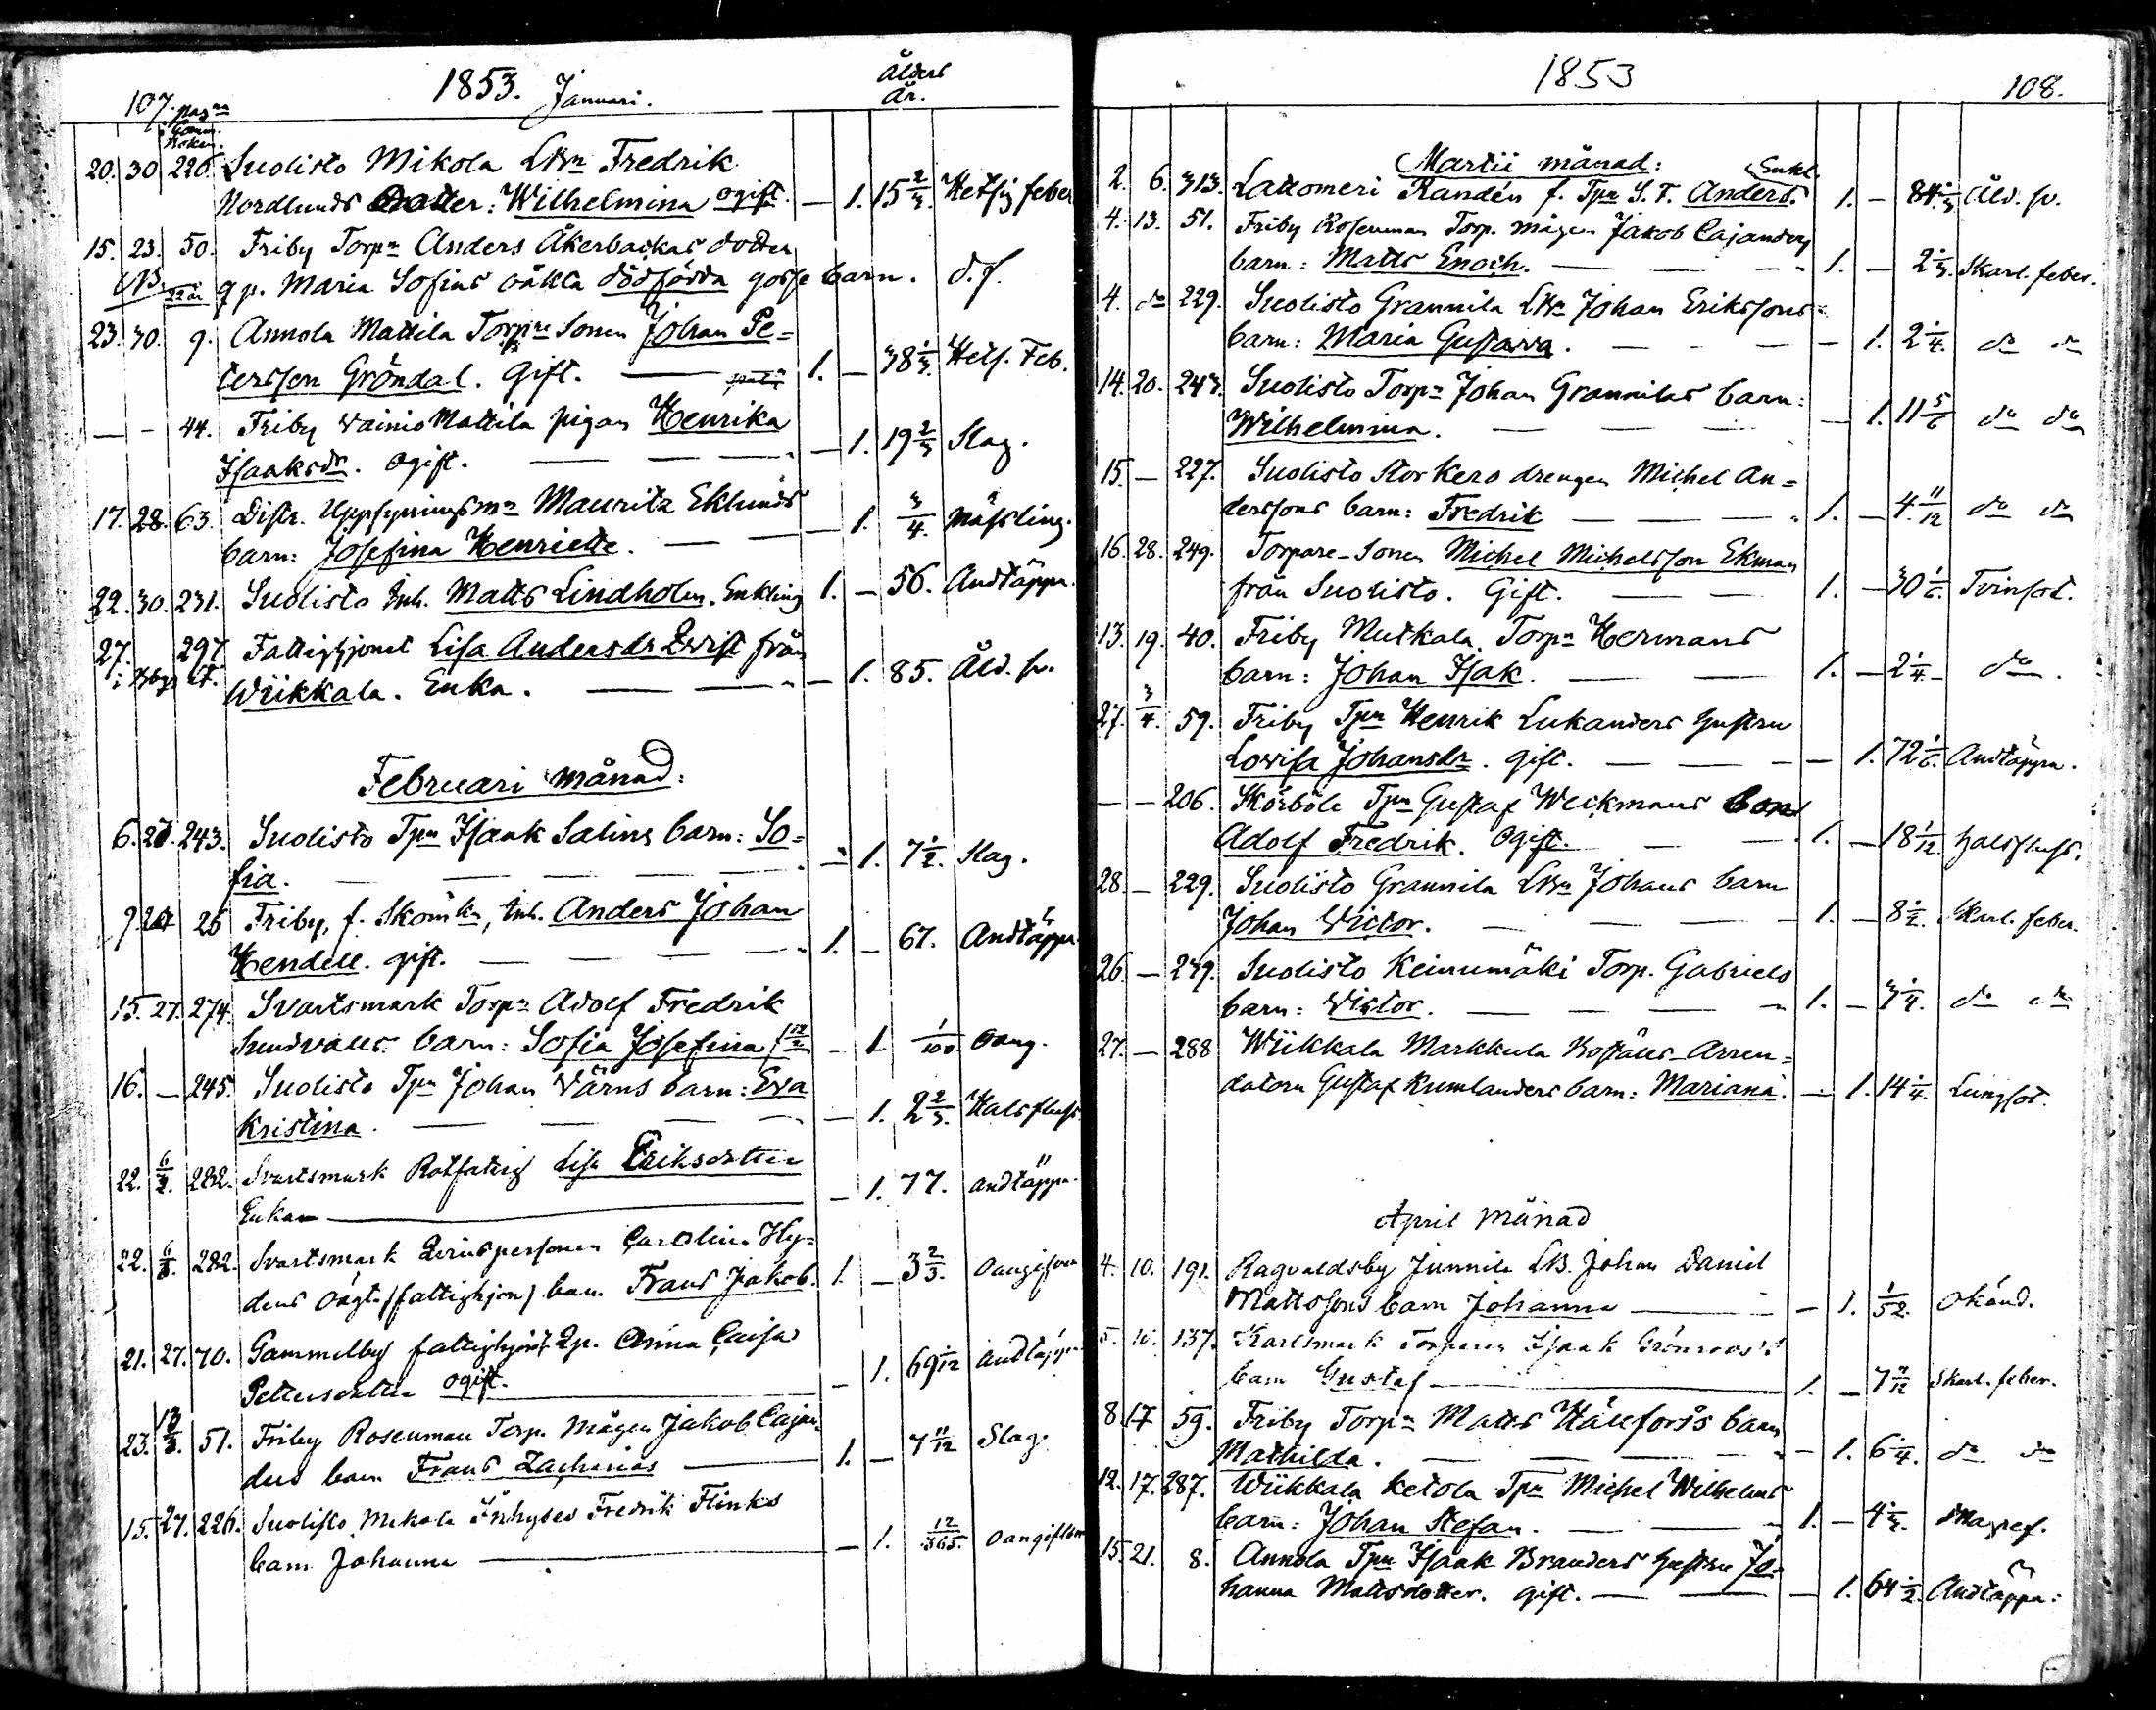 107. pag:na 1853. Januari. Ålders
Comm. Boken. År.
20. 30 226. Suolisto Mikola LBn Fredrik
Nordlunds Dotter: Wilhelmina ogift. — 1. 15 2/3. Hetsig feber
15. 23. 50. Friby Torpn Anders Åkerbackas dotter
NB. 22 år qp. Maria Sofias oäkta dödfödda gosse barn. d.f.
23. 30. 9. Annola Mattila Torpre Sonen Johan Pe-
tersson Gröndal. Gift. — 1. — 38 1/3. Hets. Feb.
— — 44. Friby Wainio Mattila pigan Henrika
Isaksdr. Ogift. — — — 1. 19 2/3 Slag.
17. 28. 63. Distr. Uppsyningsmn Mauritz Eklunds
barn: Josefina Henriette. — — 1. 3/4. Mässling.
22. 30. 231. Suolisto Inh. Matts Lindholm. Enkling 1. — 56. Andtäppa.
27. 297 Fattighjonet Lisa Andersdr Qvist från
Wiikkala. Enka. — — — 1. 85. Åld. sv.
Februari månad:
6. 20. 243. Suolisto Tpn Isaak Salins barn: So-
fia. — — — — — 1. 7 1/2. Slag.
9. 20 26 Friby, f. Skomkr, Inh. Anders Johan
Hendell. gift. — — — — 1. — 67. Andtäppa
15. 27. 274. Svartsmark Torpn Adolf Fredrik
Sundvalls barn: Sofia Josefina — 1. 1/100. oang.
16. — 245. Suolisto Tpn Johan Värns barn: Eva
Kristina. — — — — 1. 2 2/3. Halsfluss
22. 6/3. 282. Svartsmark Rotfattig Lisa Eriksdotter
Enkan — — 1. 77. andtäppa.
22. 6/3. 282. Svartsmark Qvinspersonen Carolina Hy-
dens oägta (fattighjon) barn Frans Jakob. 1. — 3 2/3. oangifven
21. 27. 70. Gammelby fattighjonet Qp. Anna Caisa
Pettersdotter ogift. — — 1. 69 1/12 andtäppa
23. 13/3. 51. Friby Rosenman Torp. Mågen Jakob Cajan-
ders barn Frans Zacharias — 1. — 7 11/12 Slag.
15. 27. 226. Suolisto Mikola Inhyses Fredrik Flinks
barn Johanna — — 1. 12/365. oangifven
1853 108.
Martii månad: Enkl.
2. 6. 313. Lattomeri Randén f. Tpn S. F. Anders. 1. — 84 1/3 Åld. sv.
4. 13. 51. Friby Rosenman Torp. mågen Jakob Cajanders
barn: Matts Enoch. — — — 1. — 2 1/3. Skarl. feber.
4. do 229. Suolisto Grannila LBn Johan Erikssons
barn: Maria Gustava. — — — — 1. 2 1/4. do do
14. 20. 243. Suolisto Torpn Johan Grannilas barn:
Wilhelmina. — — — — 1. 11 5/6 do do
15. — 227. Suolisto Storkero drengen Michel An-
derssons barn: Fredrik — — — 1. — 4 11/12 do do
16. 28. 249. Torpare-Sonen Michel Michelsson Ekman
från Suolisto. Gift. — — 1. — 30 1/6. Tvinsot.
13. 19. 40. Friby Mutkala Torpn Hermans
barn: Johan Isak. — — 1. — 2 1/4. do.
27. 3/4. 59. Friby Tpn Henrik Lukanders hustru
Lovisa Johansdr. gift. — — — 1. 72 1/6. Andtäppa.
— — 206. Skörböle Tpn Gustaf Weckmans Son
Adolf Fredrik. Ogift. — — 1. — 18 1/12 Halsfluss.
28. — 229. Suolisto Grannila LBn Johans barn
Johan Victor. — — — 1. — 8 1/2. Skarl. feber.
26. — 249. Suolisto Keinumäki Torp. Gabriels
barn: Victor. — — — 1. — 3 1/4. do do
27. — 288 Wiikkala Markkula Boställs-Arren-
datorn Gustaf Kumlanders barn: Mariana. — 1. 14 1/4. Lungsot.
April Månad
4. 10. 191. Ragvaldsby Junnila LB. Johan Daniel
Mattssons barn Johanna — — 1. 1/52. okänd.
5. 10. 137. Karlsmark Torparen Isaak Grönroos's
barn Gustaf — 1. — 7 7/12 Skarl. feber.
8. 17 59. Friby Torpn Matts Hällfors's barn
Mathilda. — — — — 1. 6 1/4. do do
12. 17. 287. Wiikkala Ketola Tpn Michel Wilhelms
barn: Johan Stefan. — — 1. — 4 1/2.
15. 21. 8. Annola Tpn Isaak Branders hustru Jo-
hanna Mattsdotter. gift. — — 1. 64 1/2. Andtäppa.